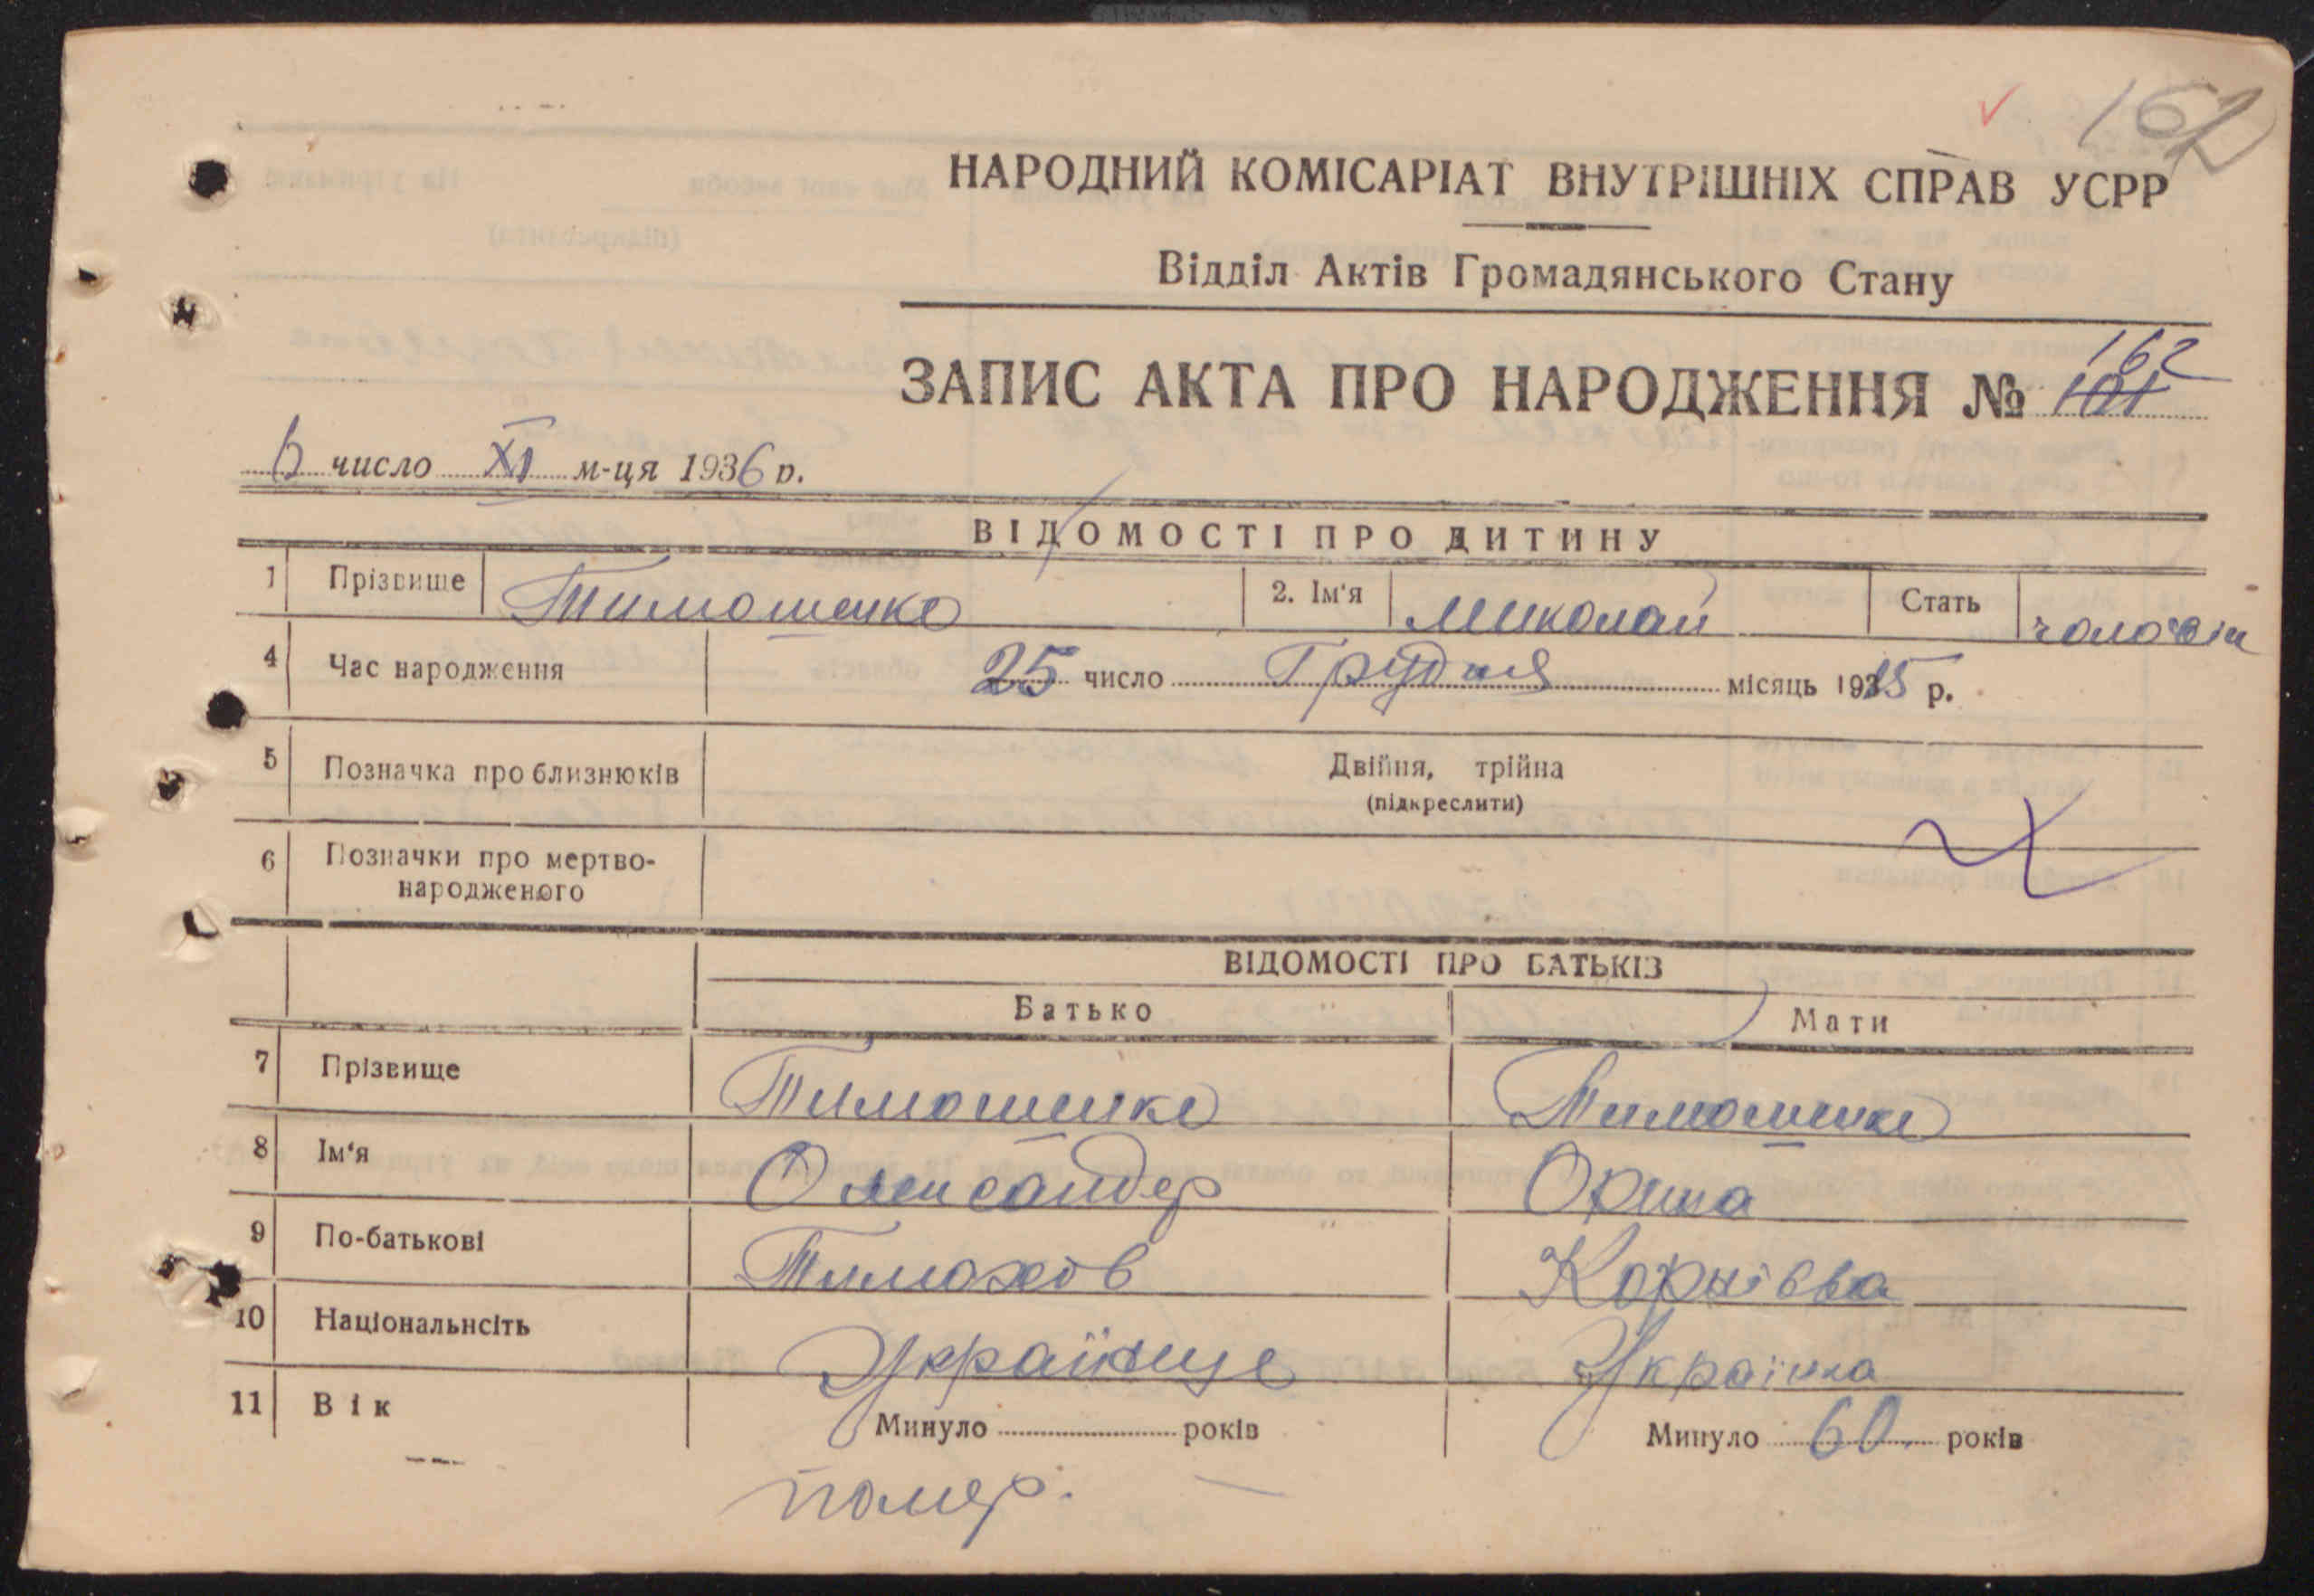 162
НАРОДНИЙ КОМІСАРІАТ ВНУТРІШНІХ СПРАВ УСРР
Відділ Актів Громадянського Стану
162
ЗАПИС АКТА ПРО НАРОДЖЕННЯ № 101
6 число XI м-ця 1936 р.
ВІДОМОСТІ ПРО ДИТИНУ
1 Прізвище Тимошенко 2. Ім'я Миколай Стать чоловіч
4 Час народження 25 число Грудня місяць 1915 р.
5 Позначка про близнюків Двійня, трійна
(підкреслити)
6 Позначки про мертво-
народженого
ВІДОМОСТІ ПРО БАТЬКІВ
Батько Мати
7 Прізвище Тимошенко Тимошенко
8 Ім'я Олександер Орина
9 По-батькові Тимохов Корнієвна
10 Національнсіть Українце Українка
11 Вік Минуло років Минуло 60 років
помер.